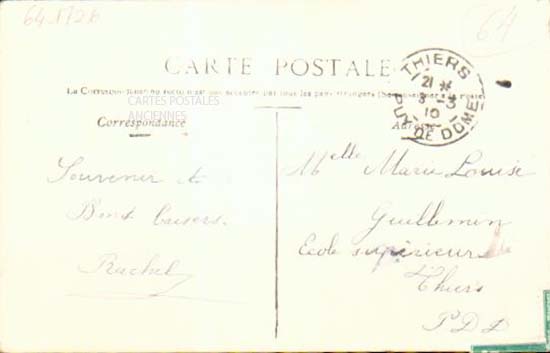 64.172b
64
CARTE POSTALE
La Correspondance au recto n'est pas acceptée par tous les pays étrangers (Se renseigner à la Poste)
CARTES POSTALES
ANCIENNES
Correspondance
Adresse
THIERS
21 *
8 - 3
10
PUY-DE-DOME
Souvenir &
Bons baisers.
Rachel
Melle Marie Louise
Guillemin
Ecole supérieure
Thiers
P D D